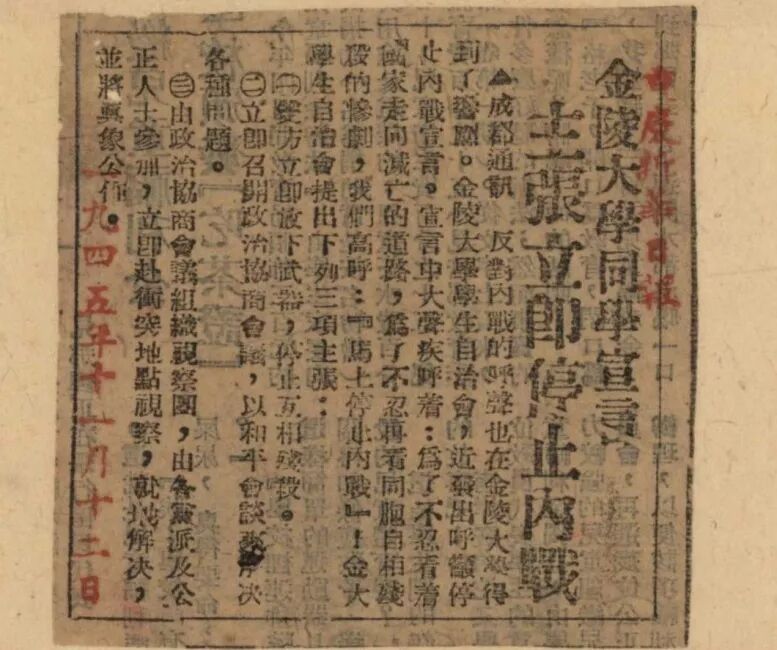 重慶新華日報
金陵大學同學宣言
主張立即停止內戰
▲成都通訊　反對內戰的呼聲也在金陵大學得
到了響應。金陵大學學生自治會，近發出呼籲停
止內戰宣言。宣言中大聲疾呼着：爲了不忍看着
國家走向滅亡的道路，爲了不忍再看同胞自相殘
殺的慘劇，我們高呼：『馬上停止內戰』！金大
學生自治會提出下列三項主張：
㈠雙方立卽放下武器，停止互相殘殺。
㈡立卽召開政治協商會議，以和平會談來解決
各種問題。
㈢由政治協商會議組織視察團，由各黨派及公
正人士參加，立卽赴衝突地點視察，就地解決，
並將眞象公佈。
一九四五年十一月十二日